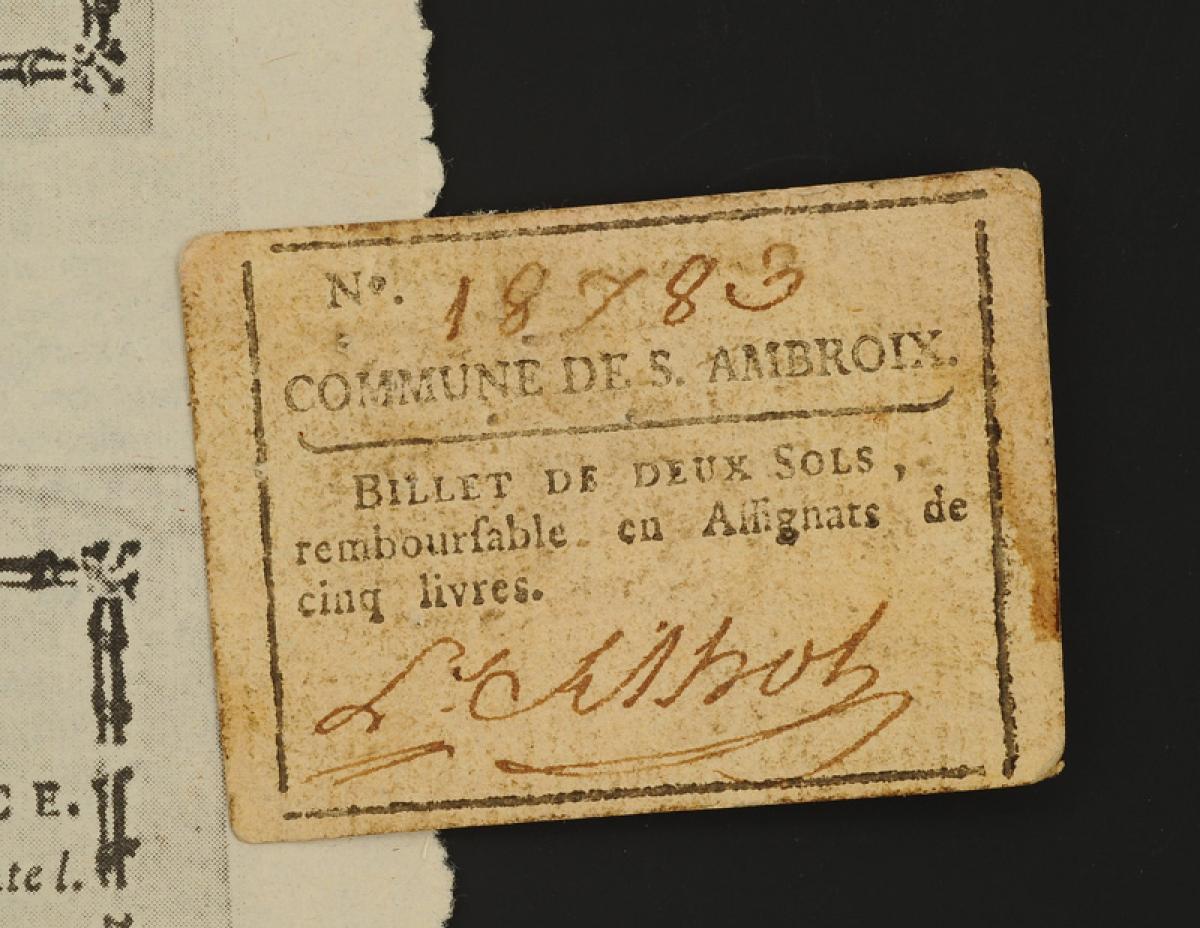 Nº. 18783
COMMUNE DE S. AMBROIX.
BILLET DE DEUX SOLS,
rembourſable en Aſſignats de
cinq livres.
CE.